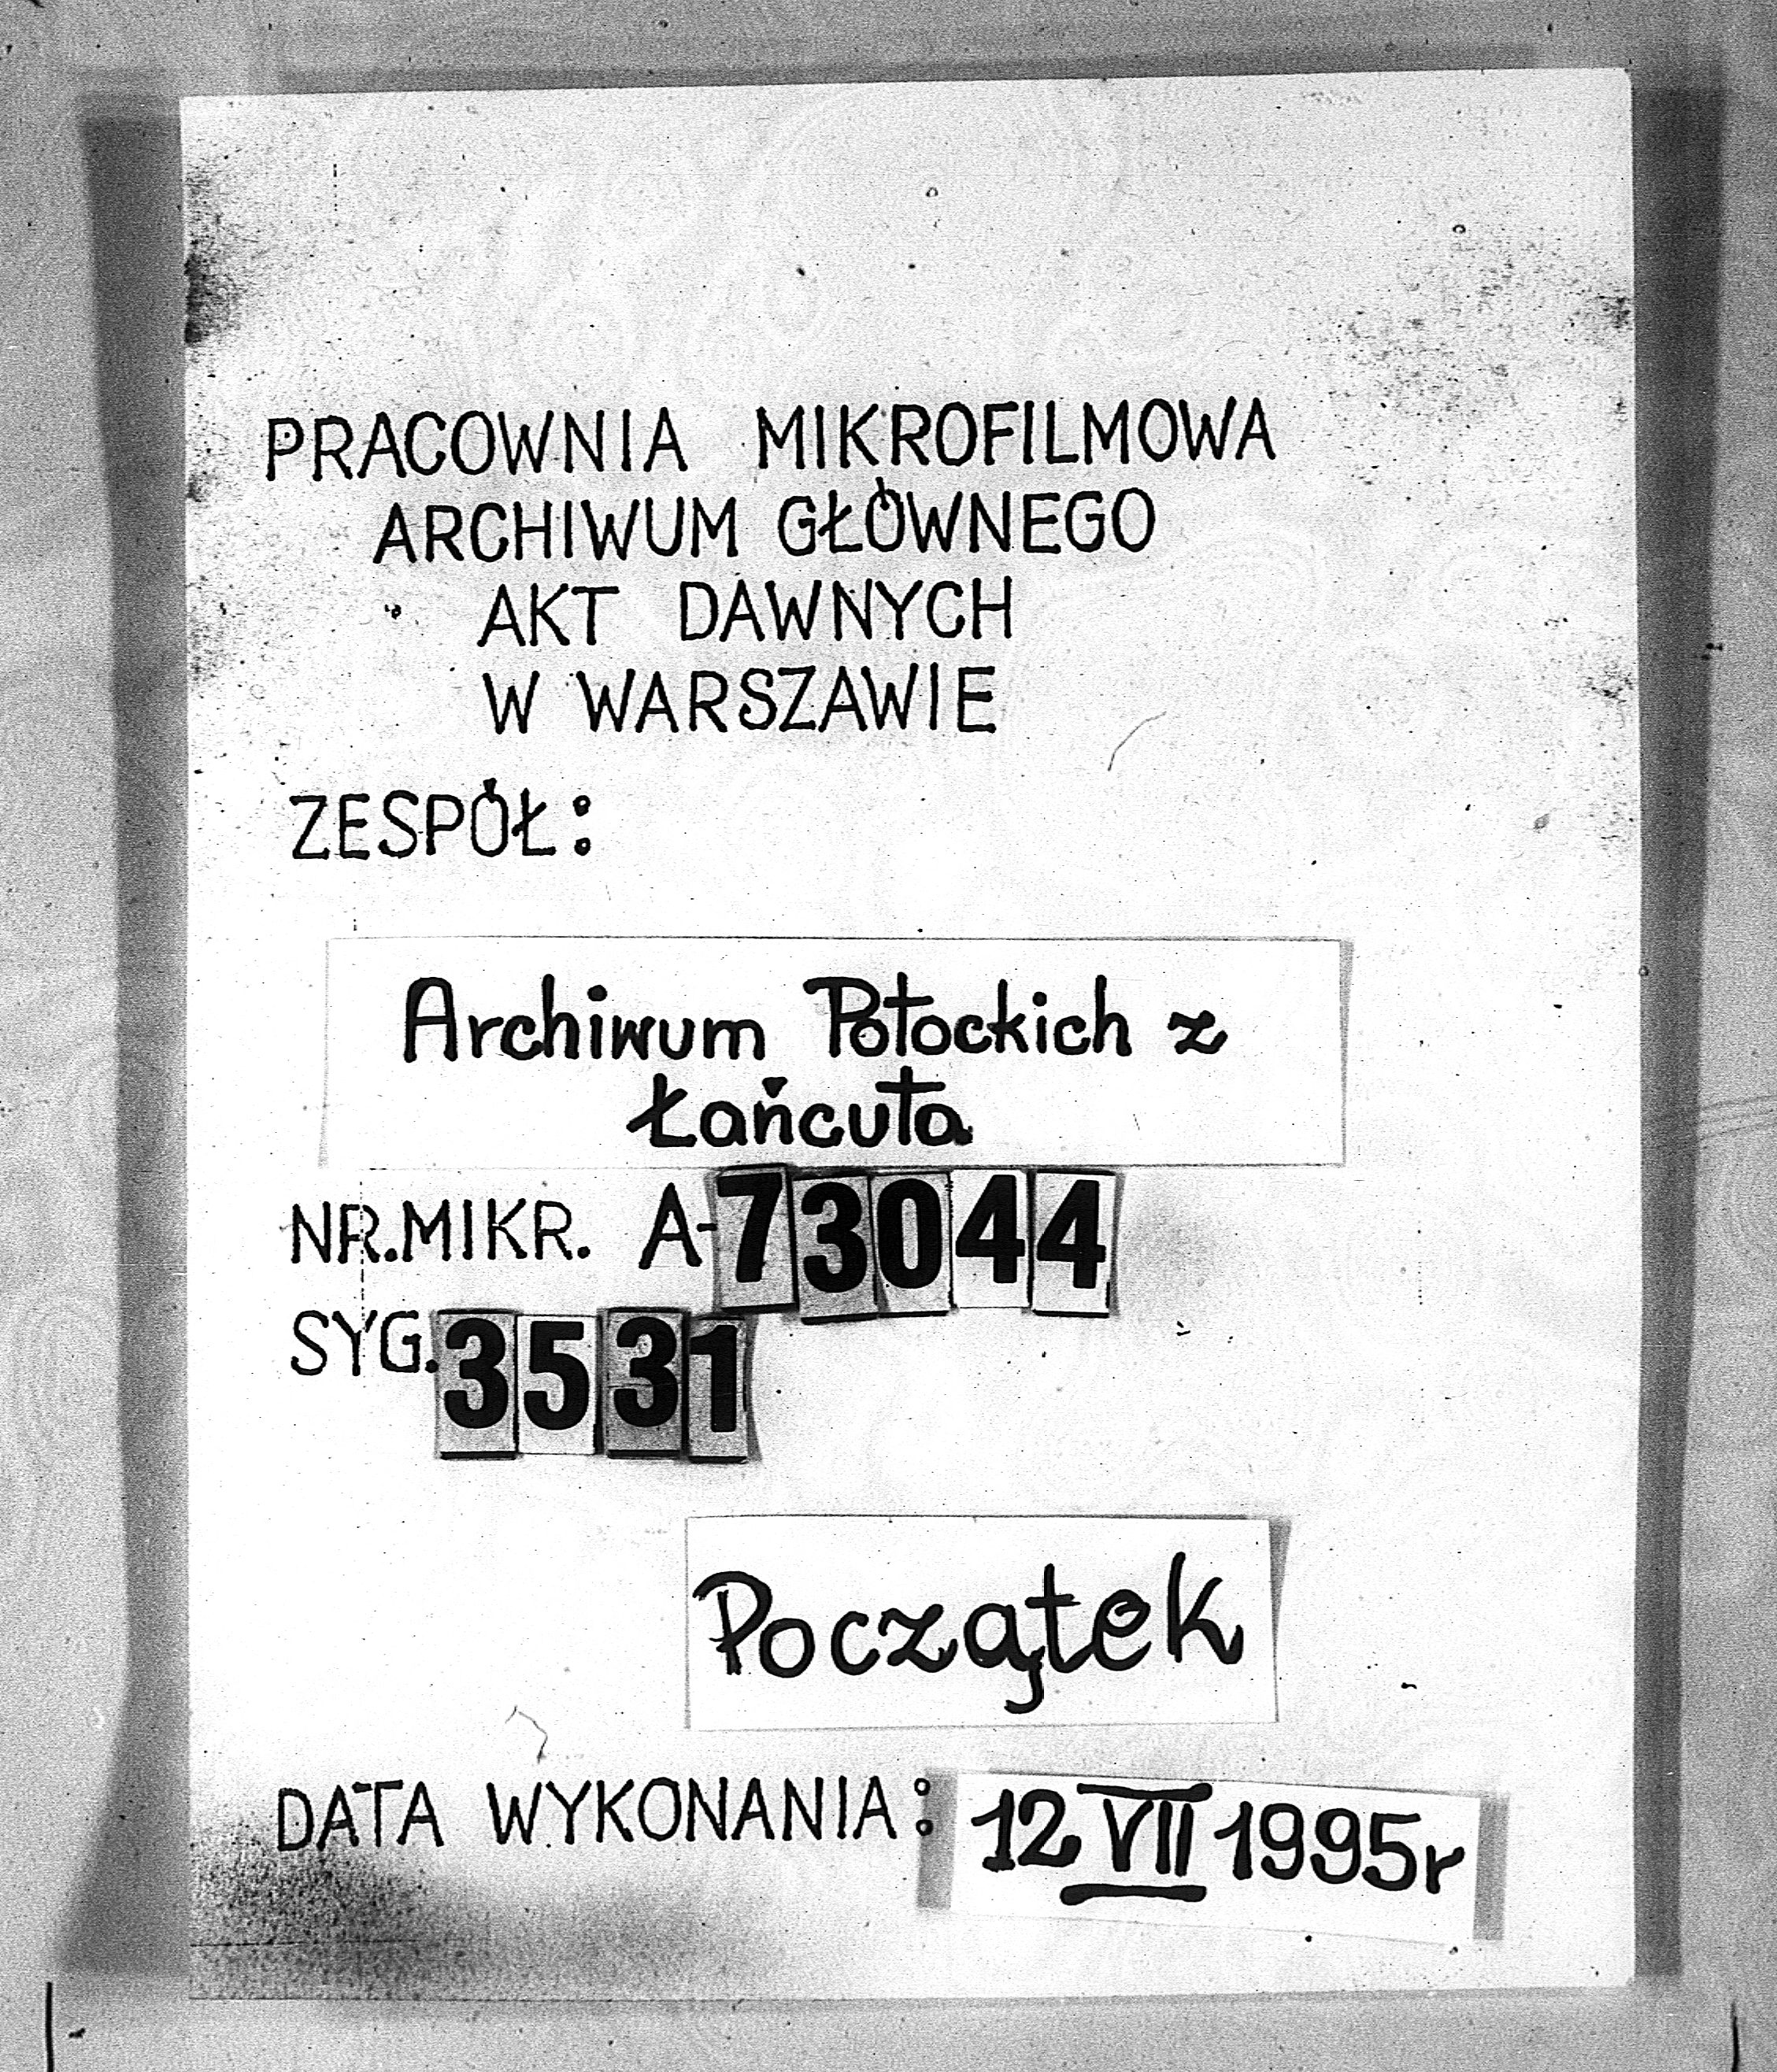 PRACOWNIA MIKROFILMOWA
ARCHIWUM GŁÓWNEGO
AKT DAWNYCH
W WARSZAWIE
ZESPÓŁ:
Archiwum Potockich z
Łańcuta
NR.MIKR. A-73044
SYG. 3531
Początek
DATA WYKONANIA: 12 VII 1995r